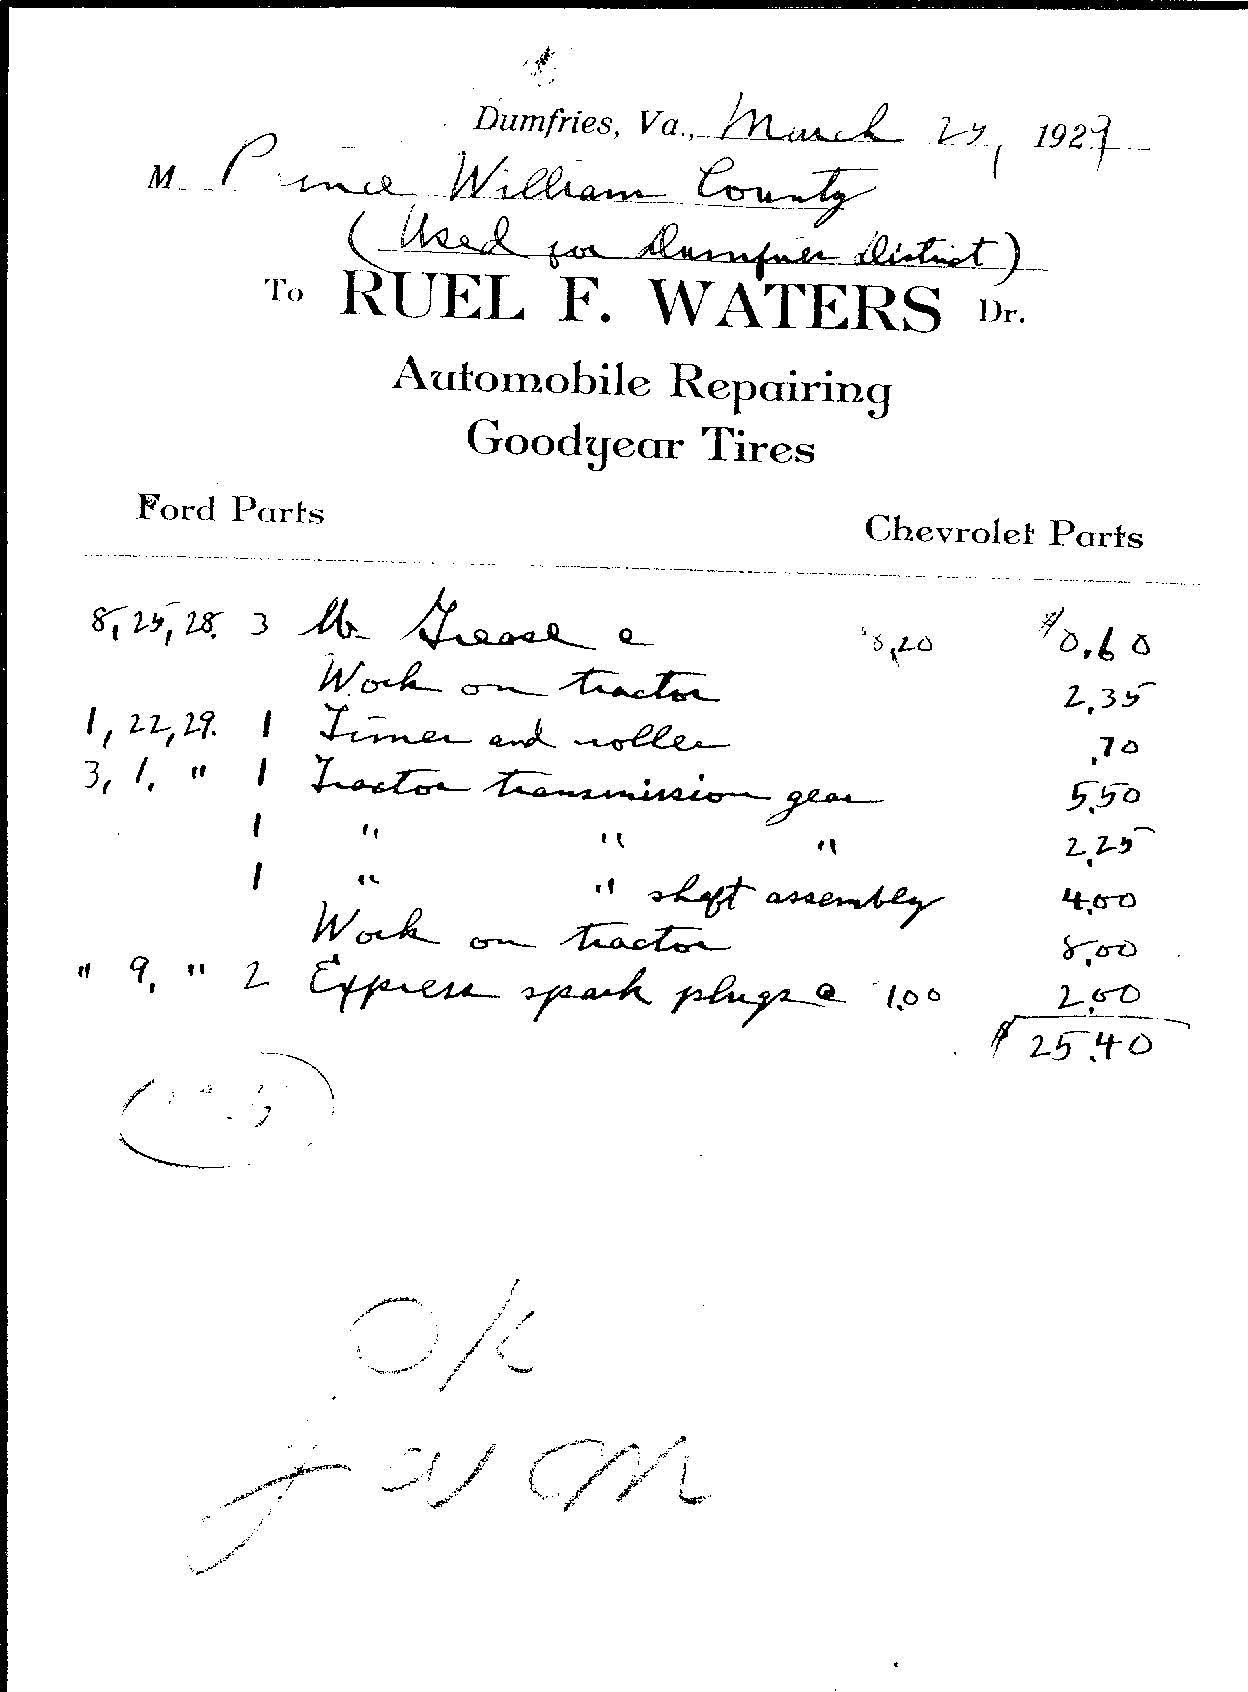 Dumfries, Va., March 27, 1929
M Prince William County
(Used for Dumfries District)
To RUEL F. WATERS Dr.
Automobile Repairing
Goodyear Tires
Ford Parts
Chevrolet Parts
8, 25, 28. 3 lb. Grease @ $0.20 $0.60
Work on tractor 2.35
1, 22, 29. 1 Timer and roller .70
3, 1, " 1 Tractor transmission gear 5.50
1 " " " 2.25
1 " " shaft assembly 4.00
Work on tractor 8.00
" 9, " 2 Express spark plugs @ 1.00 2.00
$25.40
OK